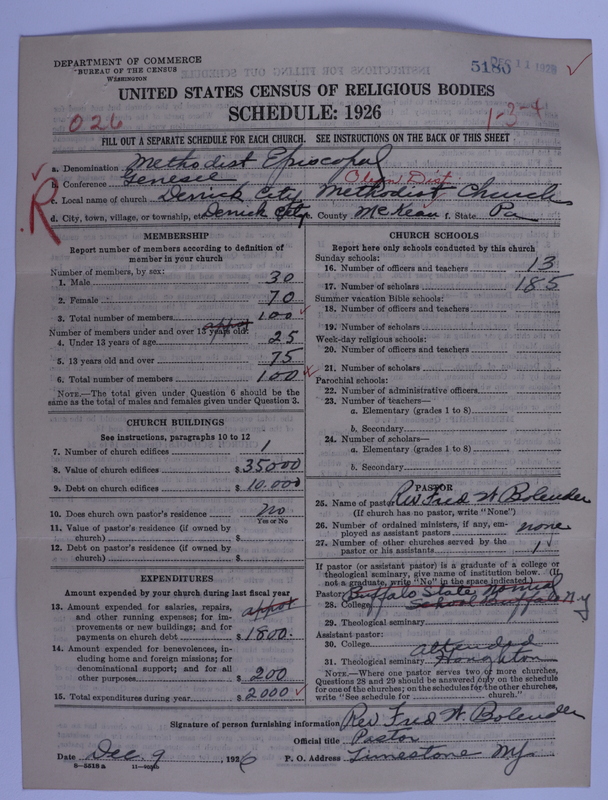 DEPARTMENT OF COMMERCE
BUREAU OF THE CENSUS
WASHINGTON
5180 DEC 11 1926
UNITED STATES CENSUS OF RELIGIOUS BODIES
SCHEDULE: 1926
026
1-3-4
FILL OUT A SEPARATE SCHEDULE FOR EACH CHURCH. SEE INSTRUCTIONS ON THE BACK OF THIS SHEET
R
a. Denomination Methodist Episcopal
b. Conference Genesee Olean Dist
c. Local name of church Derrick City Methodist Church
d. City, town, village, or township, etc. Derrick City e. County McKean f. State Pa
MEMBERSHIP
Report number of members according to definition of
member in your church
Number of members, by sex:
1. Male 30
2. Female 70
3. Total number of members 100
Number of members under and over 13 years old: appox
4. Under 13 years of age 25
5. 13 years old and over 75
6. Total number of members 100
NOTE.—The total given under Question 6 should be
the same as the total of males and females given under Question 3.
CHURCH BUILDINGS
See instructions, paragraphs 10 to 12
7. Number of church edifices 1
8. Value of church edifices $ 35000
9. Debt on church edifices $ 10.000
10. Does church own pastor's residence? no
Yes or No
11. Value of pastor's residence (if owned by
church) $
12. Debt on pastor's residence (if owned by
church) $
EXPENDITURES
Amount expended by your church during last fiscal year
13. Amount expended for salaries, repairs, appox
and other running expenses; for im-
provements or new buildings; and for
payments on church debt $ 1800.
14. Amount expended for benevolences, in-
cluding home and foreign missions; for
denominational support; and for all
other purposes $ 200
15. Total expenditures during year $ 2000
CHURCH SCHOOLS
Report here only schools conducted by this church
Sunday schools:
16. Number of officers and teachers 13
17. Number of scholars 185
Summer vacation Bible schools:
18. Number of officers and teachers
19. Number of scholars
Week-day religious schools:
20. Number of officers and teachers
21. Number of scholars
Parochial schools:
22. Number of administrative officers
23. Number of teachers—
a. Elementary (grades 1 to 8)
b. Secondary
24. Number of scholars—
a. Elementary (grades 1 to 8)
b. Secondary
PASTOR
25. Name of pastor Rev Fred W Bolender
(If church has no pastor, write "None")
26. Number of ordained ministers, if any, em-
ployed as assistant pastors none
27. Number of other churches served by the
pastor or his assistants 1
If pastor (or assistant pastor) is a graduate of a college or
theological seminary, give name of institution below. (If
not a graduate, write "No" in the space indicated.)
Pastor: Buffalo State Normal
28. College School Buffalo N.Y
29. Theological seminary
Assistant pastor:
30. College attended
31. Theological seminary Houghton
NOTE.—Where one pastor serves two or more churches,
Questions 28 and 29 should be answered only on the schedule
for one of the churches; on the schedules for the other churches,
write "See schedule for church."
Signature of person furnishing information Rev Fred W. Bolender
Official title Pastor
Date Dec 9, 1926 P. O. Address Limestone NY.
8-5618a